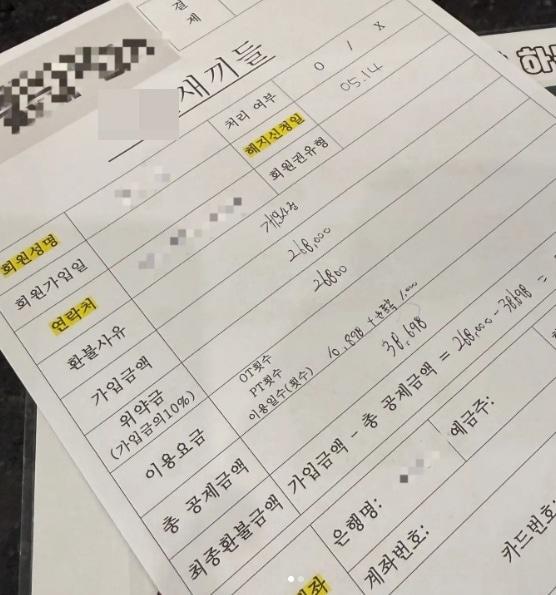 결
제
새끼들
하
처리 여부
O / X
해지신청일
05.14
회원권유형
회원성명
회원가입일
연락처
환불사유
개인사정
가입금액
268,000
위약금
(가입금의10%)
26800
이용요금
OT횟수
PT횟수
이용일수(횟수)
10,898 +
총 공제금액
38,698
최종환불금액
가입금액 - 총 공제금액 = 268,000 - 38,698 =
은행명:
예금주:
계좌번호:
카드번호:
계좌